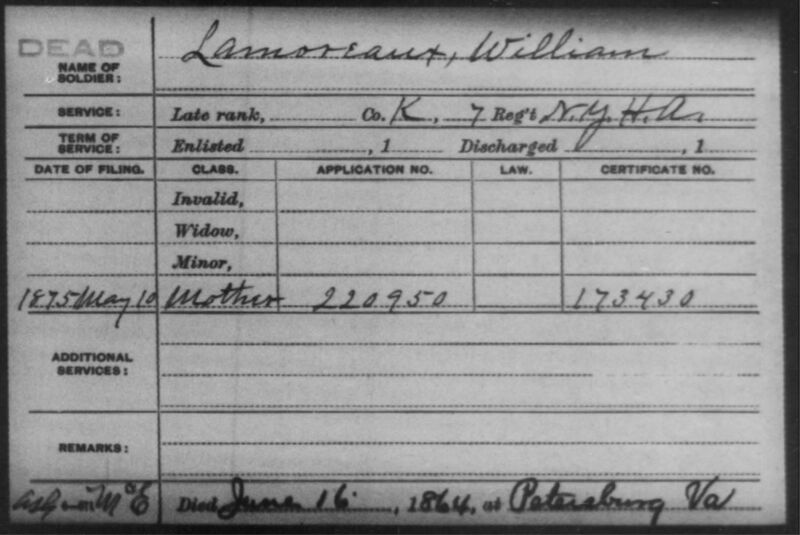 DEAD
NAME OF SOLDIER: Lamoreaux, William
SERVICE: Late rank, Co. K, 7 Reg't N.Y.H.A.
TERM OF SERVICE: Enlisted , 1 Discharged , 1
DATE OF FILING. CLASS. APPLICATION NO. LAW. CERTIFICATE NO.
Invalid,
Widow,
Minor,
1875 May 10 Mother 220950 173430
ADDITIONAL SERVICES:
REMARKS:
Died June 16, 1864, at Petersburg Va